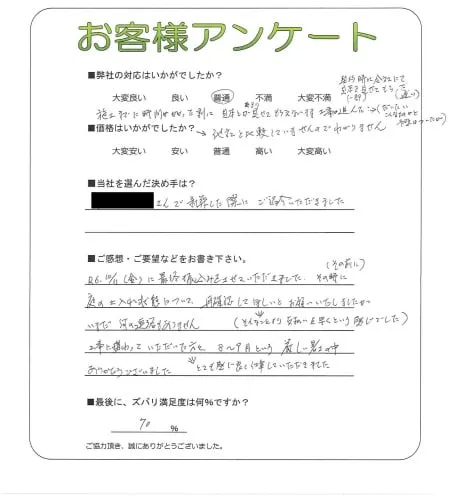 お客様アンケート
■弊社の対応はいかがでしたか?
大変良い 良い 普通 不満 大変不満
施工までに時間がかかった割に 見本とか見せてもらえないまま工事が進んだ
■価格はいかがでしたか? → 他社と比較していませんのでわかりません
大変安い 安い 普通 高い 大変高い
■当社を選んだ決め手は?
さんで新築した際に ご紹介いただきました
■ご感想・ご要望などをお書き下さい。
(その前に)
R6.10/11(金)に最終振込みをさせていただきました。その時に
庭の土入れ状態について、再確認してほしいとお願いいたしましたが
いまだ 何の連絡もありません (そんなことより支払いを早くという感じでした)
工事に携わっていただいた方々 8〜9月という 厳しい暑さの中
ありがとうございました とても感じ良く仕事していただきました
■最後に、ズバリ満足度は何%ですか?
70 %
ご協力頂き、誠にありがとうございました。